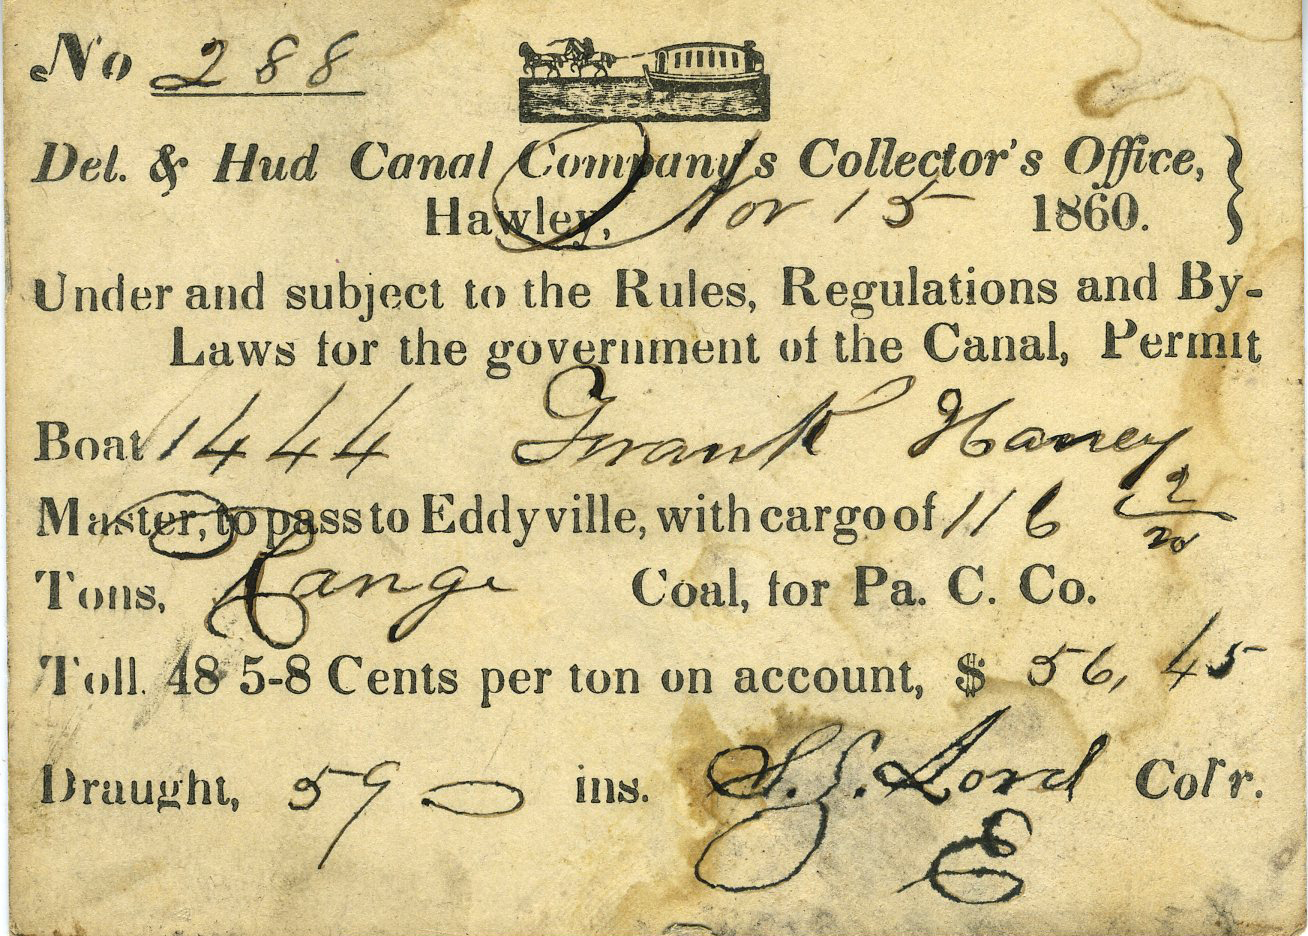 No 288
Del. & Hud Canal Company's Collector's Office,
Hawley, Nov 15 1860.
Under and subject to the Rules, Regulations and By-
Laws for the government of the Canal, Permit
Boat 1444 Frank Haney
Master, to pass to Eddyville, with cargo of 116 2/20
Tons, Range Coal, for Pa. C. Co.
Toll. 48 5-8 Cents per ton on account, $ 56,45
Draught, 59 ins. S. S. Lord Col'r.
E